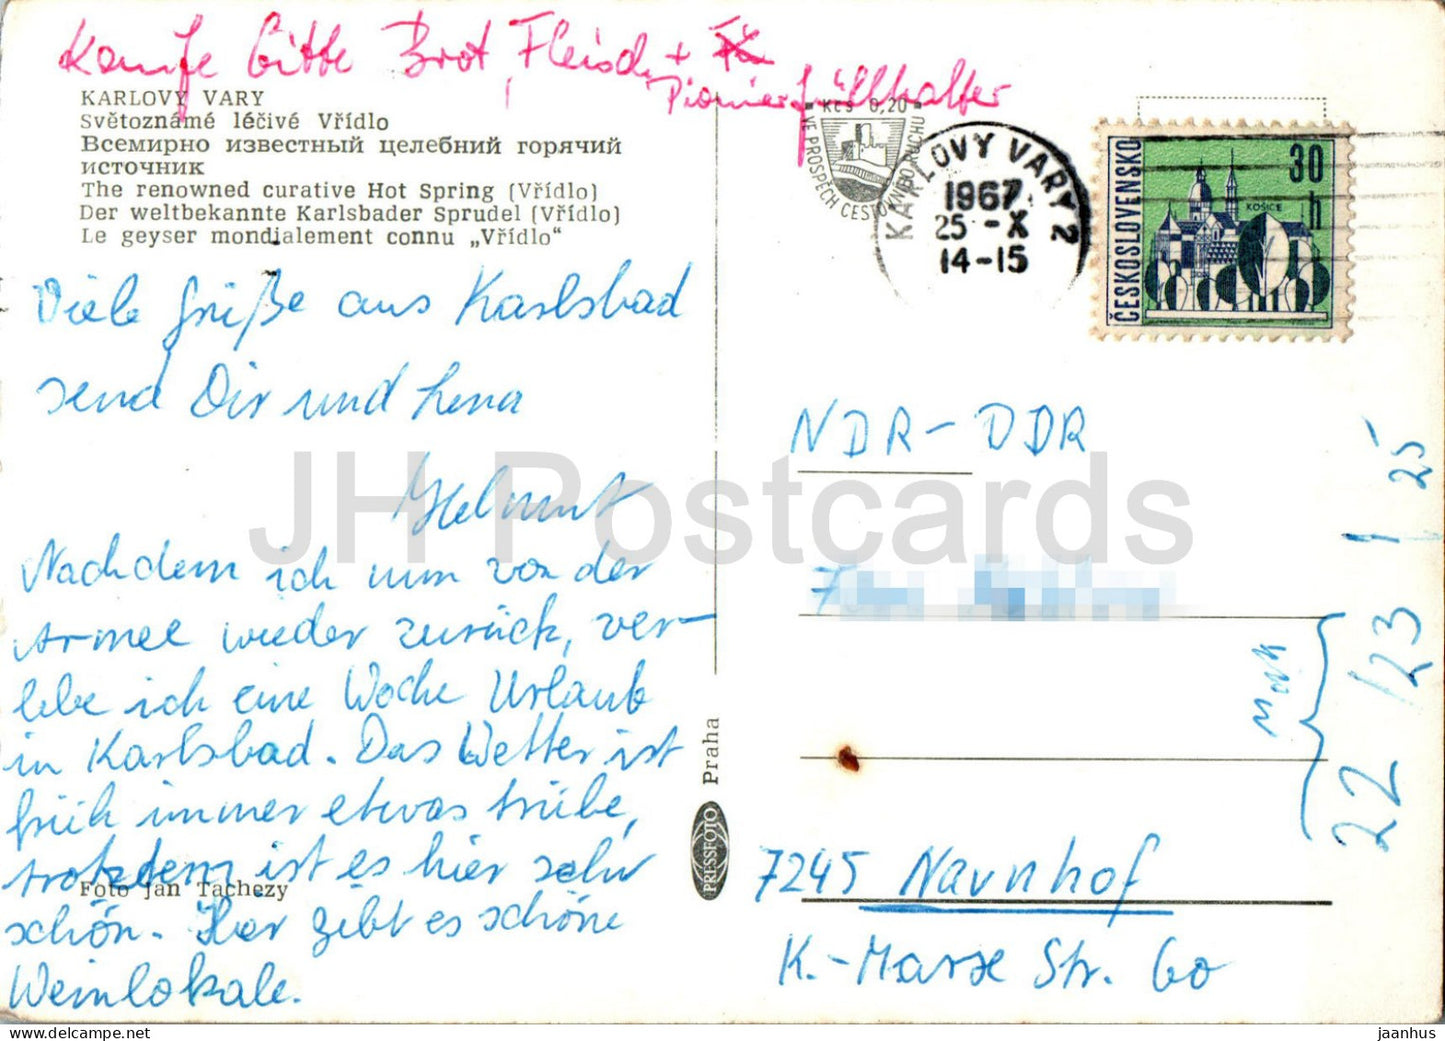 Kaufe bitte Brot, Fleisch +
Pionierfüllhalter
KARLOVY VARY
Světoznámé léčivé Vřídlo
Всемирно известный целебний горячий
источник
The renowned curative Hot Spring (Vřídlo)
Der weltbekannte Karlsbader Sprudel (Vřídlo)
Le geyser mondialement connu „Vřídlo“
Viele Grüße aus Karlsbad
send Dir und Lena
Helmut
Nachdem ich nun von der
Armee wieder zurück, ver-
lebe ich eine Woche Urlaub
in Karlsbad. Das Wetter ist
früh immer etwas trübe,
trotzdem ist es hier sehr
schön. Hier gibt es schöne
Weinlokale.
Foto Jan Tachezy
Praha
PRESSFOTO
Kčs 0,20
VE PROSPĚCH ČESKÉHO
KARLOVY VARY 2
1967
25 -X
14-15
ČESKOSLOVENSKO
30
h
KOŠICE
NDR-DDR
7245 Naunhof
K.-Marx Str. 60
22/23 / 25
22
JH Postcards
jaanhus